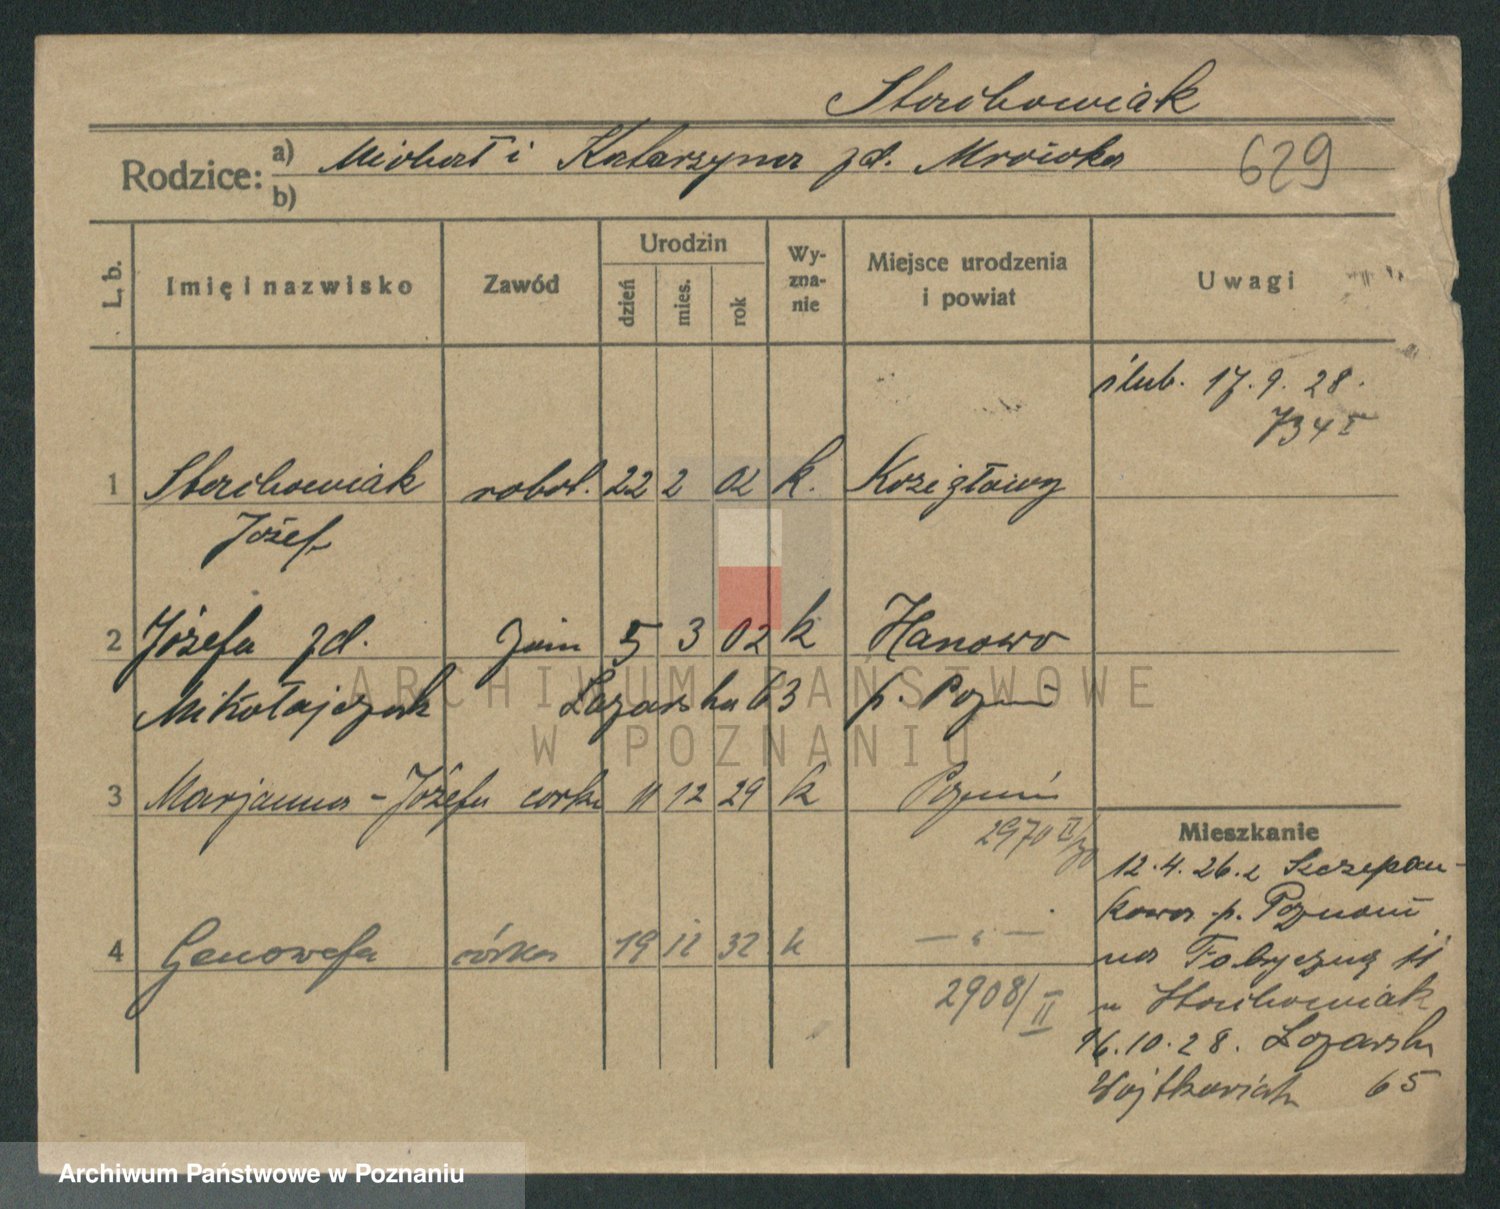 Skrzibowiak
Rodzice: a) Michał i Katarzyna zd. Mrówka
b)
629
L. b.
Imię i nazwisko
Zawód
Urodzin
dzień
mies.
rok
Wy-
zna-
nie
Miejsce urodzenia
i powiat
Uwagi
ślub. 17.9.28.
734 I
1 robot. 22 2 02 k. Koziegłowy
Józef
2 Józefa zd. 5 3 02 k Hanowo
Mikołajczak Łazarska 63 p. Poznań
3 Marjanna - Józefa córka 11 12 29 k Poznań
2970 II/30
4 Genowefa córka 19 12 32 k — „ —
2908/II
Mieszkanie
12.4.26. z Szczepan-
kowa p. Poznań
na Fabryczną 11
u
16.10.28. Łazarska
Wojtkowiak 65
ARCHIWUM PAŃSTWOWE
W POZNANIU
Archiwum Państwowe w Poznaniu